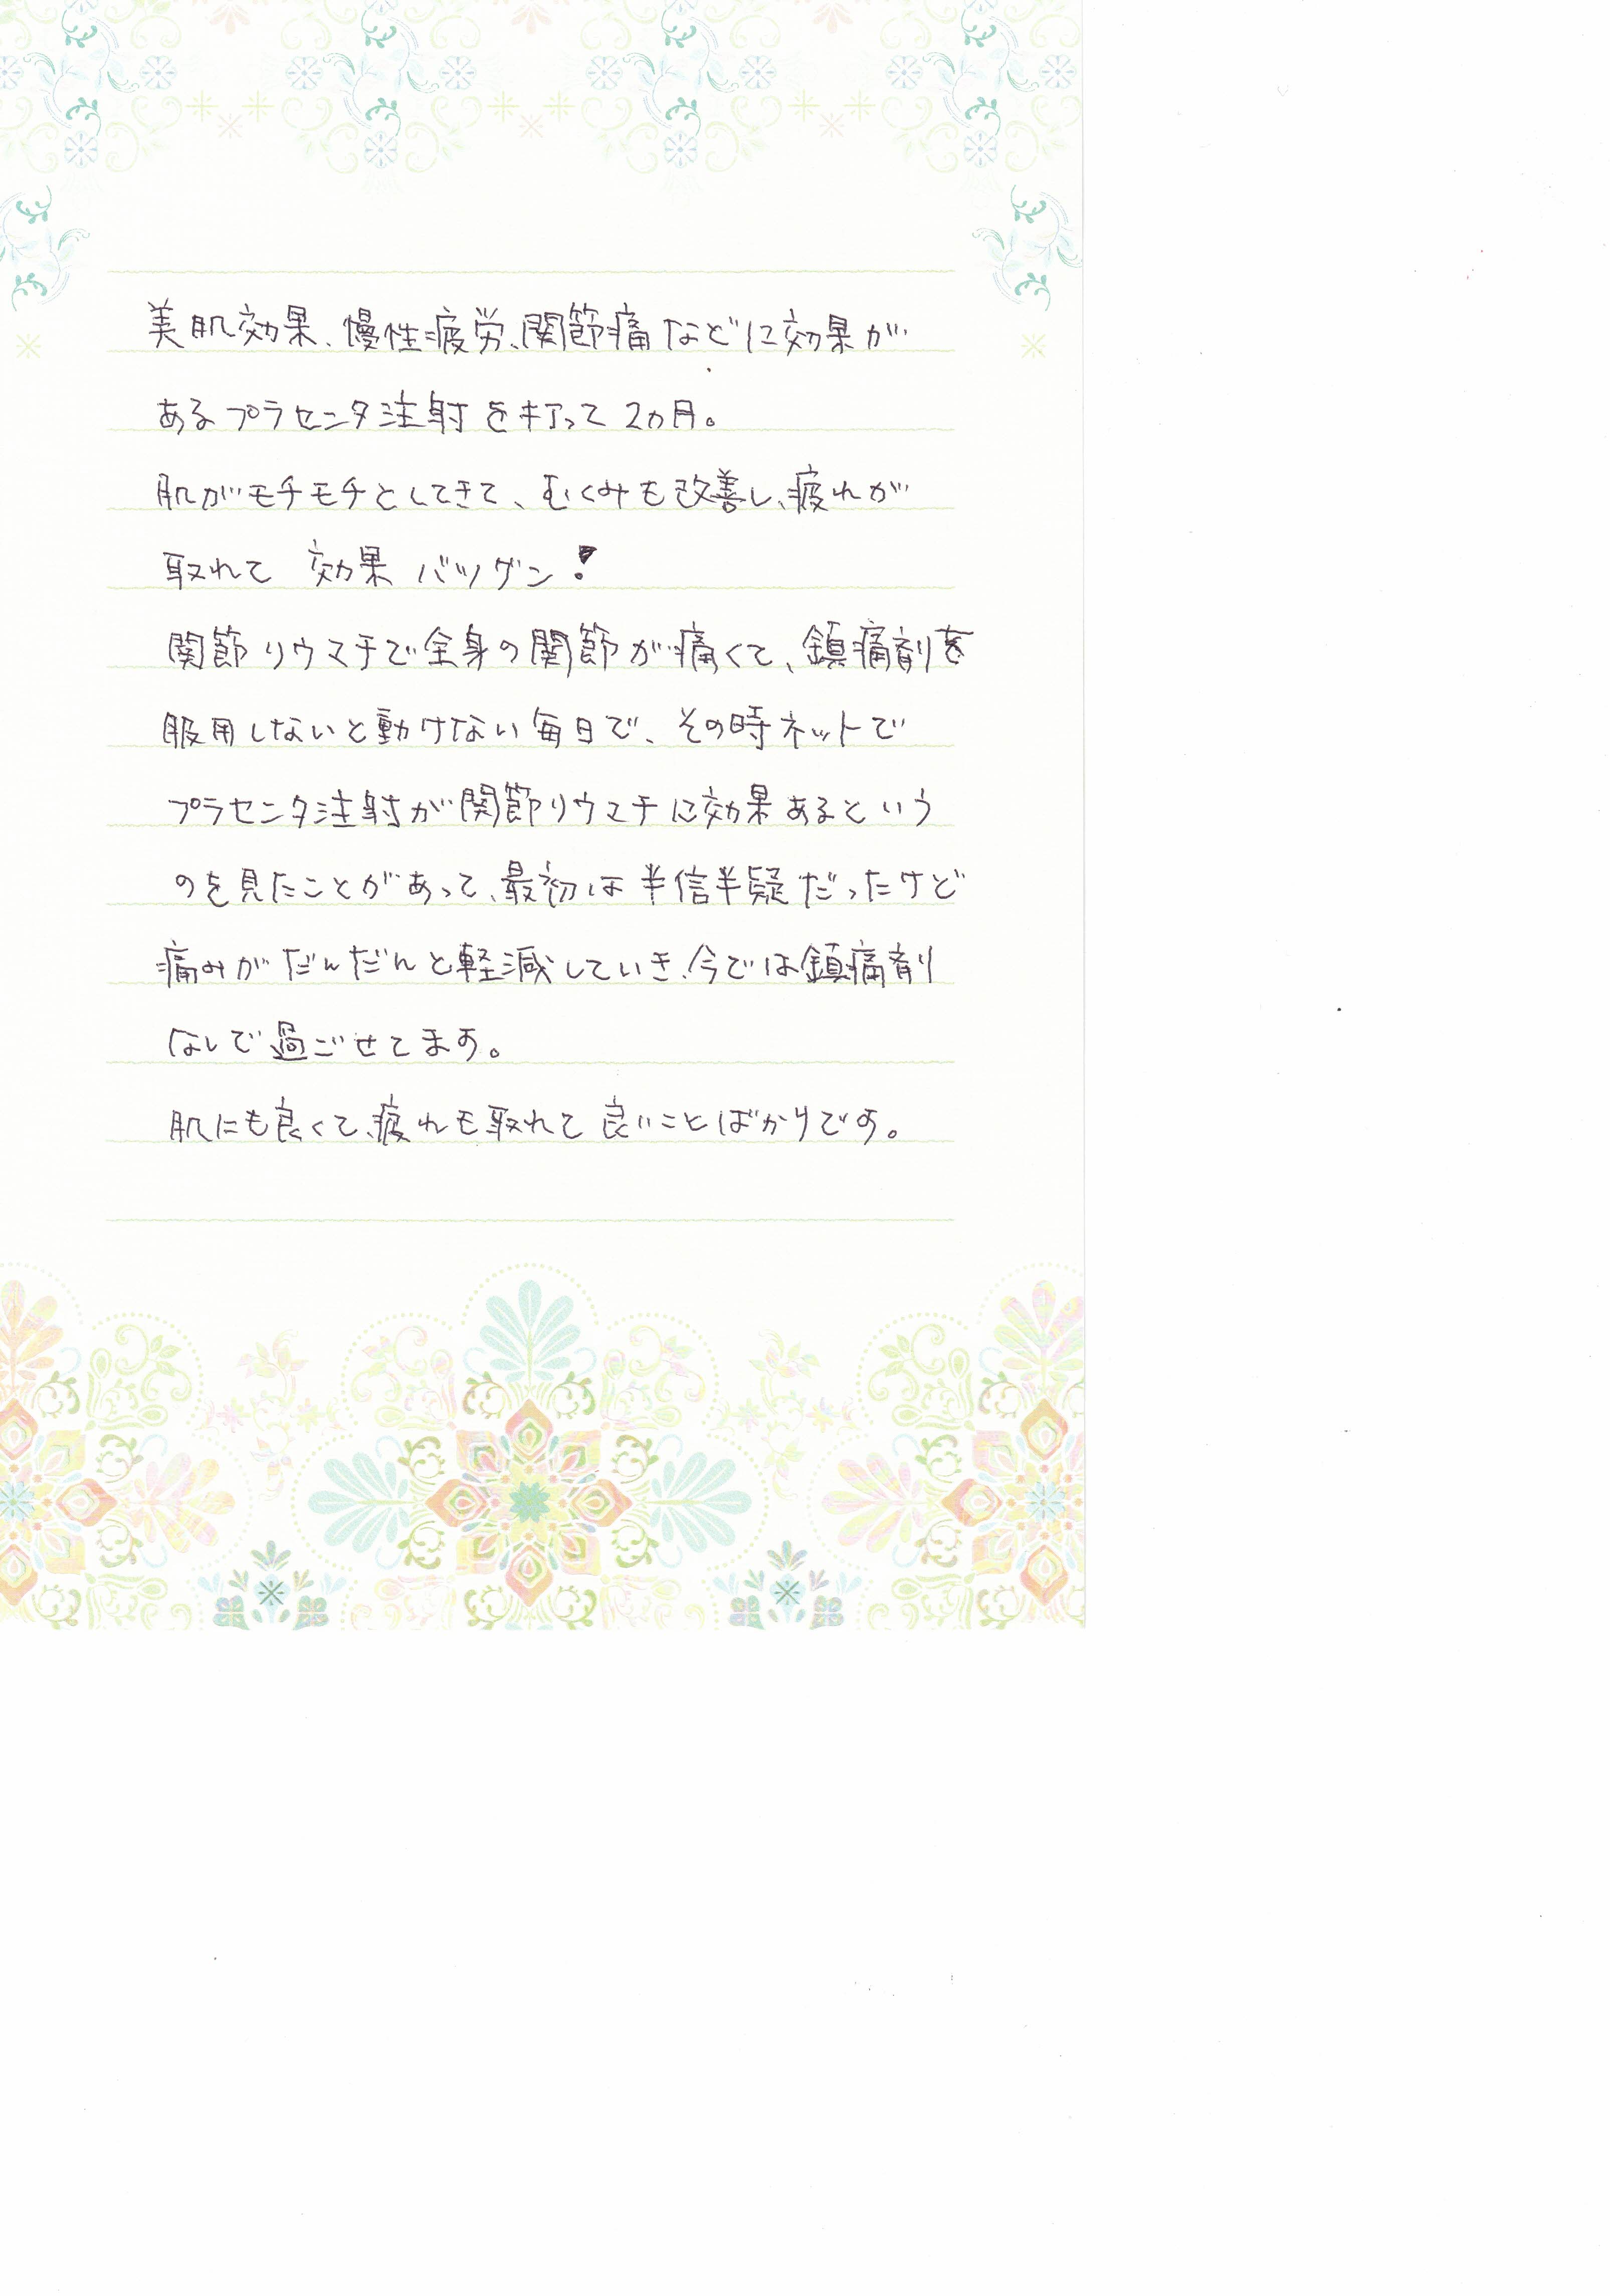 美肌効果、慢性疲労、関節痛などに効果が
あるプラセンタ注射を打って2ヵ月。
肌がモチモチとしてきて、むくみも改善し、疲れが
取れて 効果バツグン!
関節リウマチで全身の関節が痛くて、鎮痛剤を
服用しないと動けない毎日で、その時ネットで
プラセンタ注射が関節リウマチに効果あるという
のを見たことがあって、最初は半信半疑だったけど
痛みがだんだんと軽減していき、今では鎮痛剤
なしで過ごせてます。
肌にも良くて、疲れも取れて良いことばかりです。